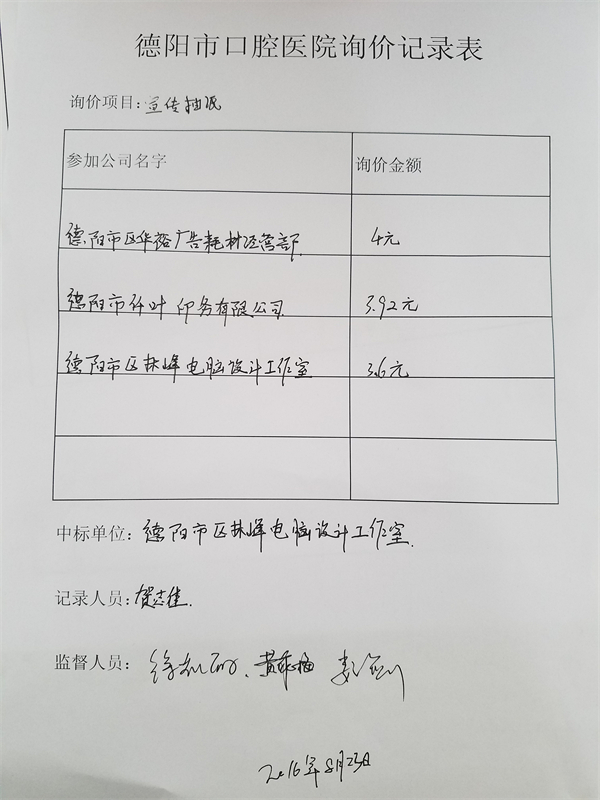 德阳市口腔医院询价记录表
询价项目：宣传抽纸
参加公司名字 询价金额
德阳市区华裕广告耗材经营部 4元
德阳市 叶印务有限公司 3.92元
德阳市区林峰电脑设计工作室 3.6元
中标单位：德阳市区林峰电脑设计工作室
记录人员：贺志佳
监督人员：
2016年8月23日